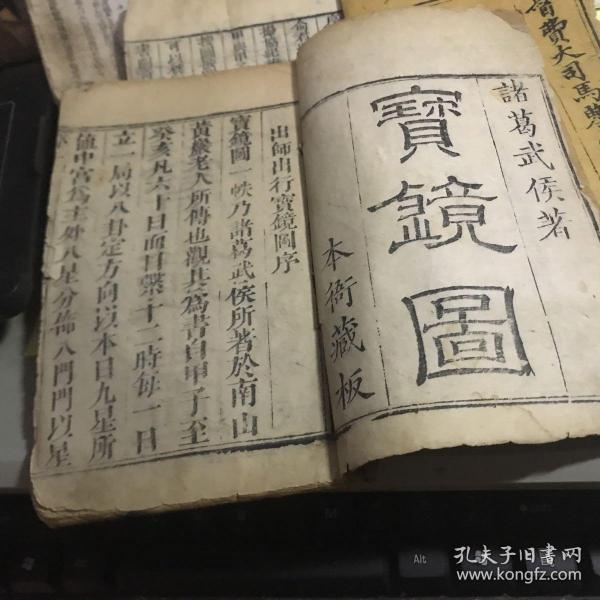 諸葛武侯著
寶鏡圖
本衙藏板
出師出行寶鏡圖序
寶鏡圖一帙乃諸葛武侯所著於南山
黃巖老人所傳也觀其爲書自甲子至
癸亥凡六十日而日繫十二時每一日
立一局以八卦定方向以本日九星所
値中宮爲主外八星分佈八門門以星
費大司馬
Alt
孔夫子旧書网
www.kongfz.com